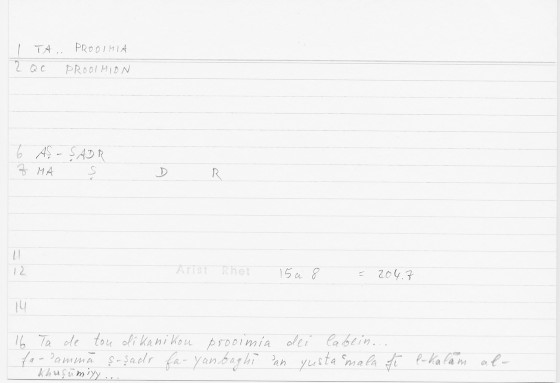 1 TA.. PROOIMIA
2 QC PROOIMION
6 AṢ-ṢADR
7 MA Ṣ D R
11
12 Arist Rhet 15a 8 = 204.7
14
16 Ta de tou dikanikou prooimia dei labein...
fa-ʾammā ṣ-ṣadr fa-yanbaghī ʾan yustaʿmala fī l-kalām al-
khuṣūmiyy...